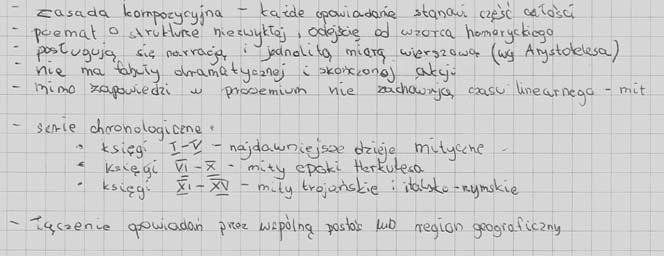 - zasada kompozycyjna - każde opowiadanie stanowi część całości
- poemat o strukturze niezwykłej, odejście od wzorca homeryckiego
- posługują się narracją i jednolitą miarą wierszową (wg Arystotelesa)
- nie ma fabuły dramatycznej i skończonej akcji
- mimo zapowiedzi w prooemium nie zachowują czasu linearnego - mit
- serie chronologiczne:
• księgi I-V - najdawniejsze dzieje mityczne
• księgi VI-X - mity epoki Herkulesa
• księgi XI-XV - mity trojańskie i italsko-rzymskie
- łączenie opowiadań przez wspólną postać lub region geograficzny